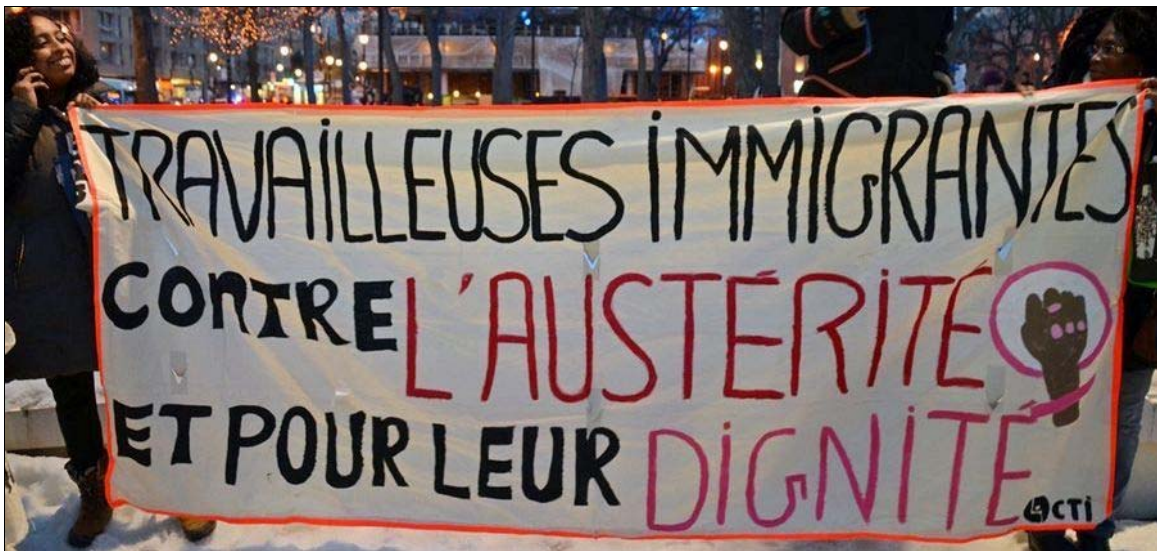 TRAVAILLEUSES IMMIGRANTES
CONTRE L'AUSTÉRITÉ
ET POUR LEUR DIGNITÉ
CTI